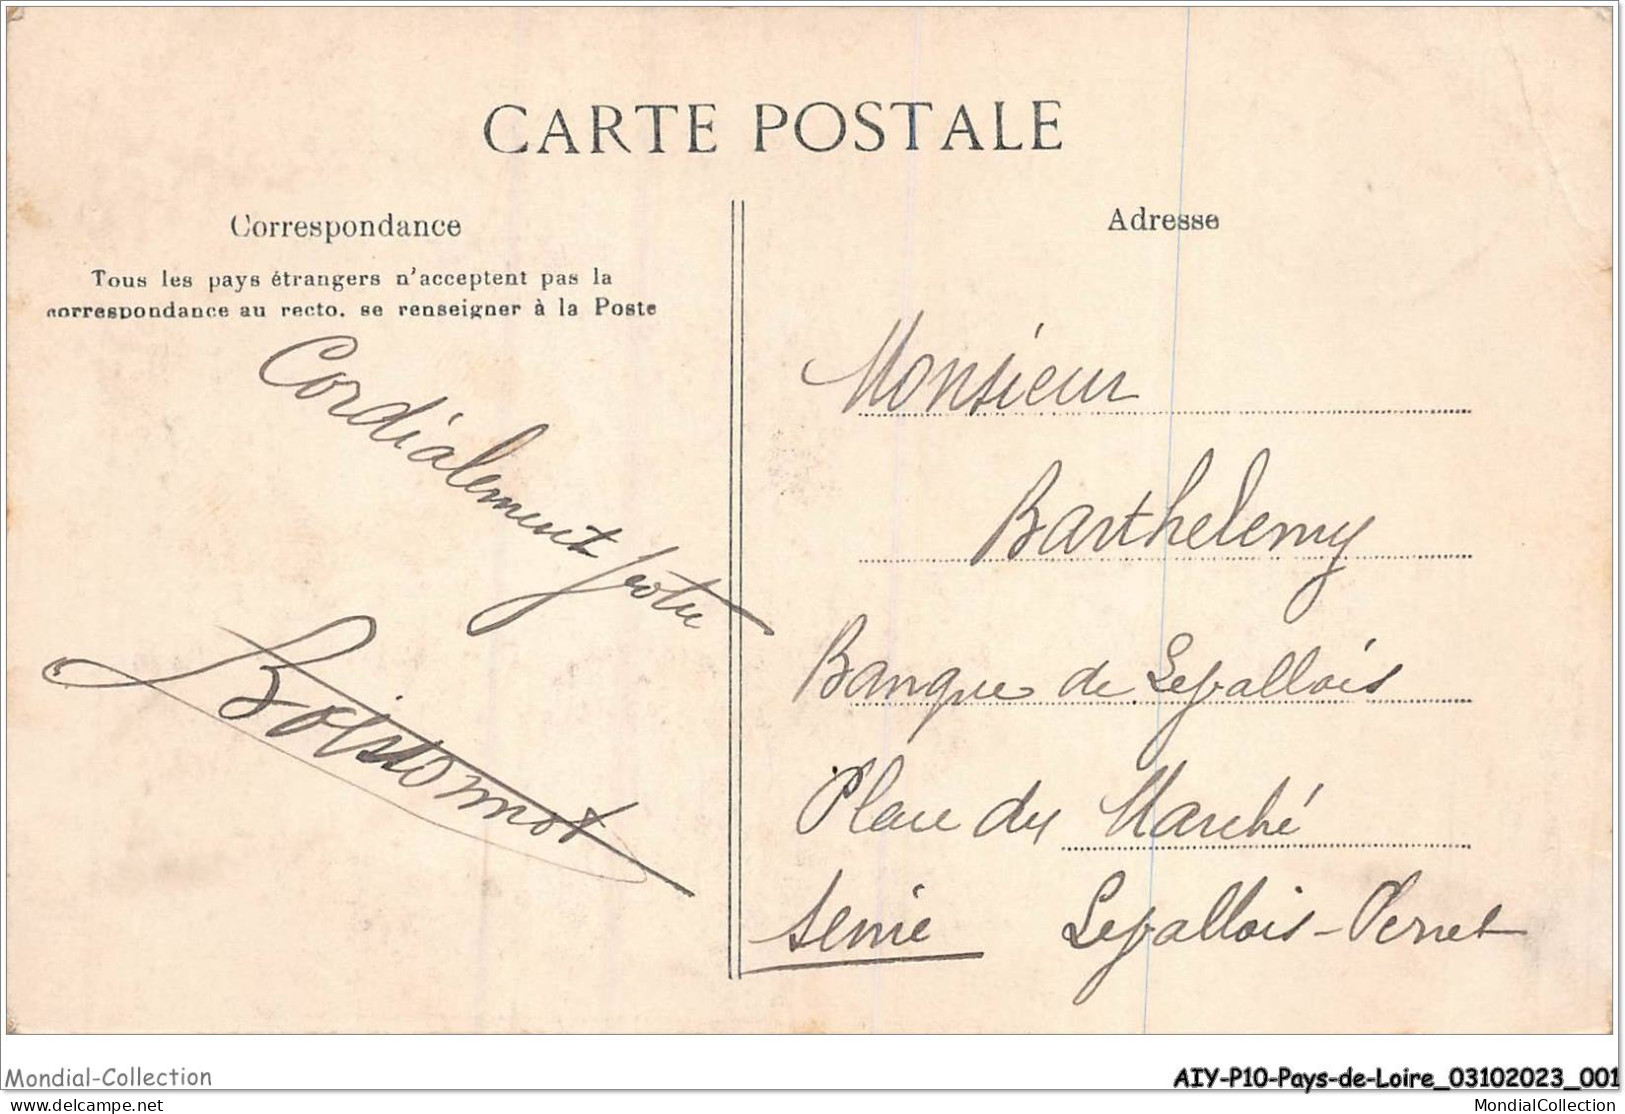 CARTE POSTALE
Correspondance
Tous les pays étrangers n'acceptent pas la
correspondance au recto, se renseigner à la Poste
Cordialement votre
Boissonnot
Adresse
Monsieur
Barthelemy
Banque de Levallois
Place du Marché
Seine Levallois-Perret
Mondial-Collection
AIY-P10-Pays-de-Loire_03102023_001
picture-worldwide.com
MondialCollection